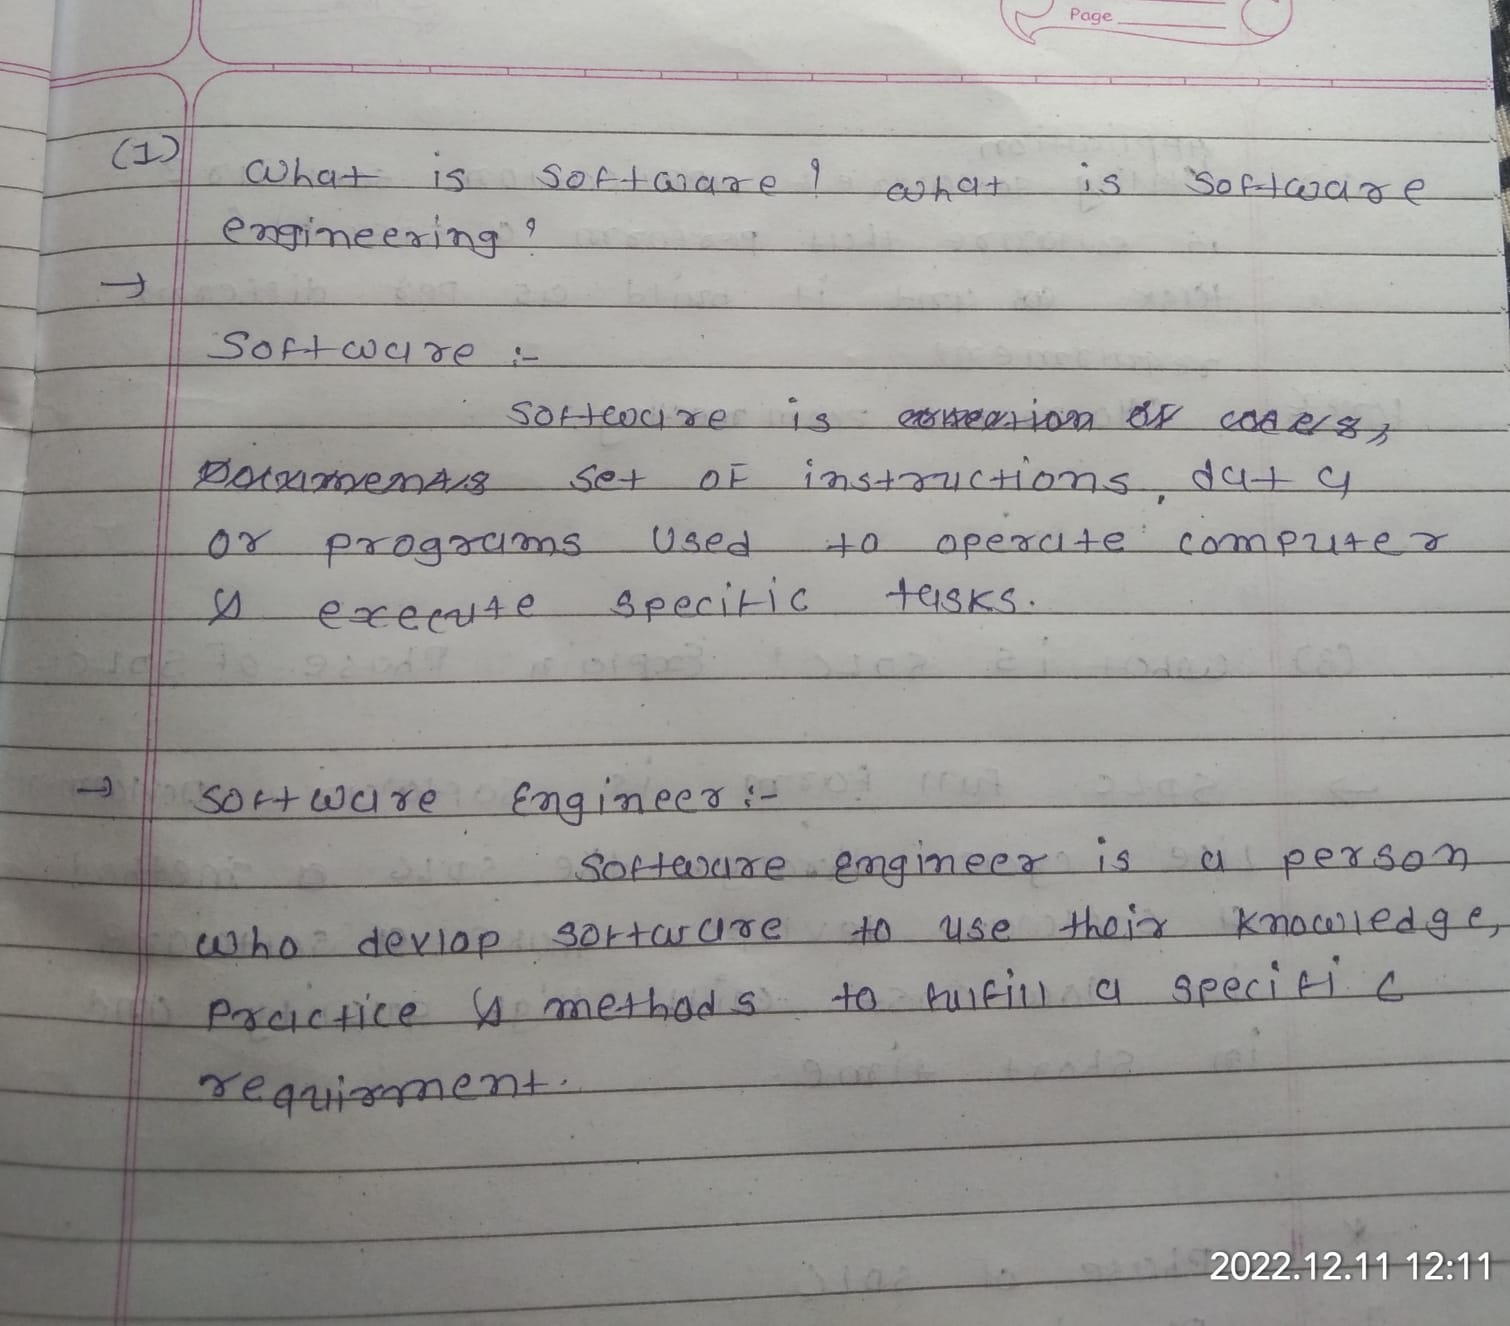 Page
(1) What is software? what is software
engineering?
→
Software :-
software is collection of codes,
Documents set of instructions, data
or programs used to operate computer
& execute specific tasks.
→ software Engineer :-
software engineer is a person
who devlop software to use their knowledge,
practice & methods to fulfill a specific
requirment.
2022.12.11 12:11